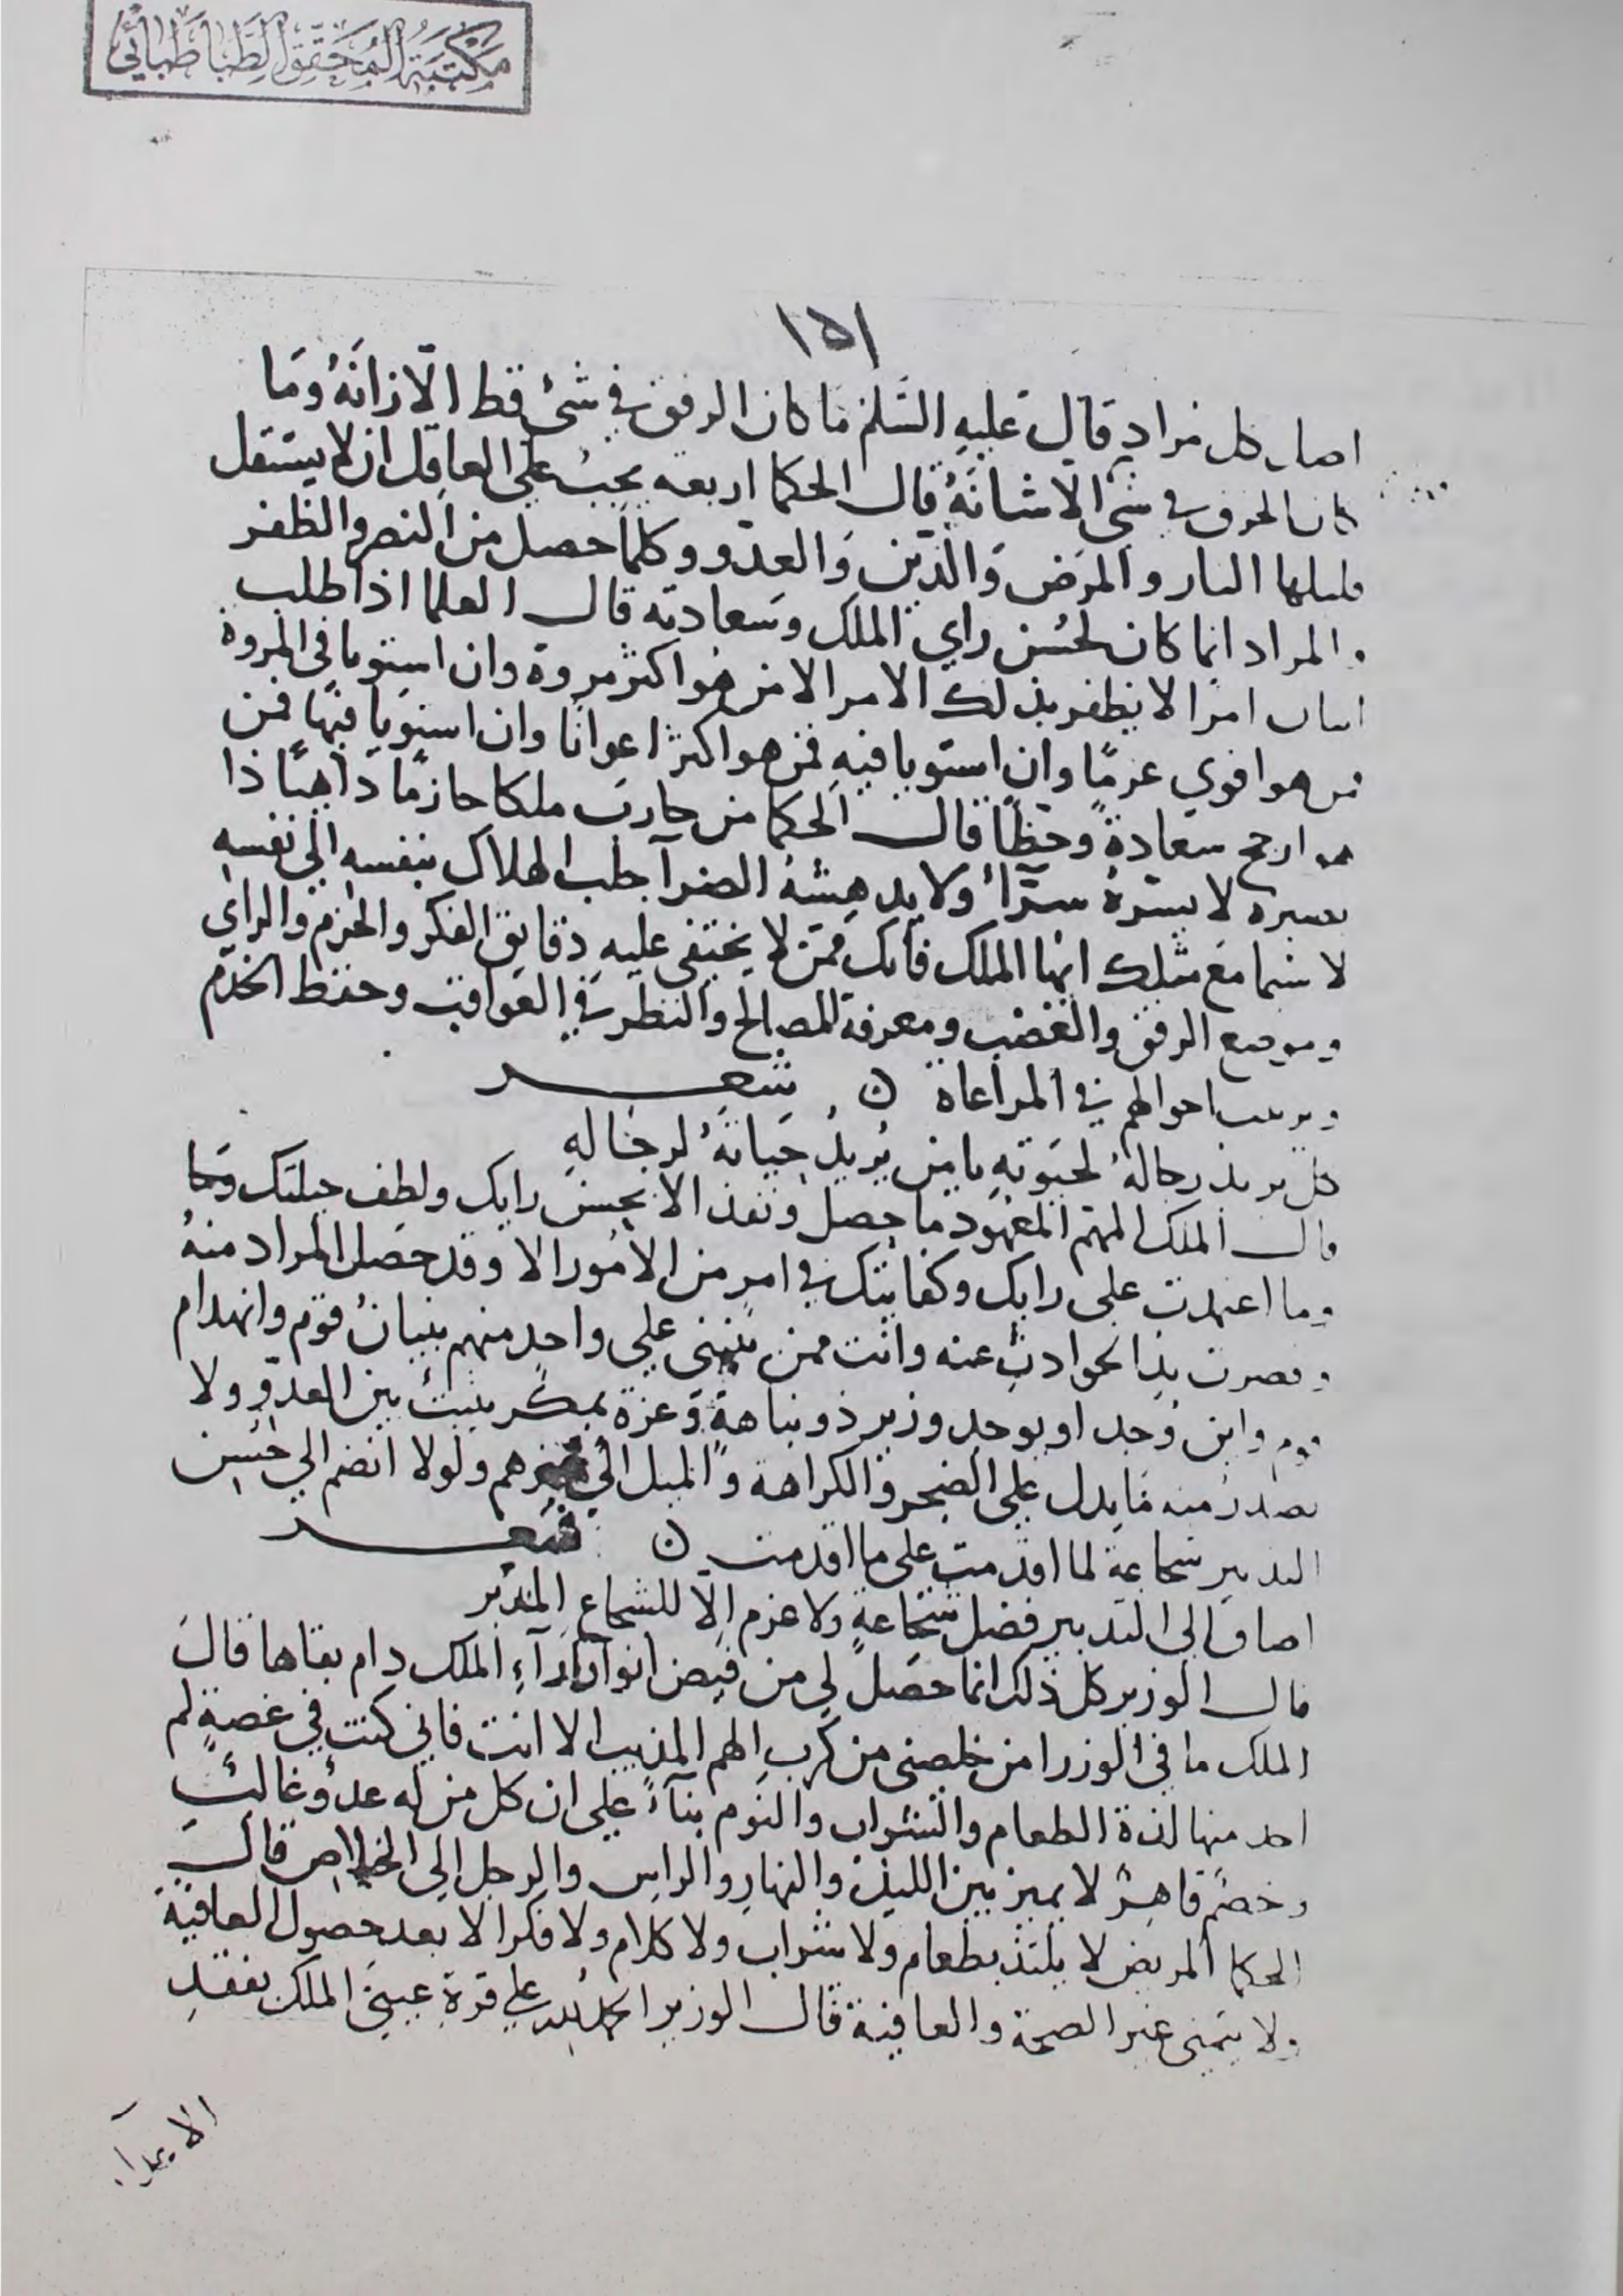 مكتبة المحقق الطباطبائي
١٥١
اصل كل مراد قال عليه السّلم ما كان الرفق في شئ قط الّا زانَهُ ومَا
كان الخرق في شئ الا شانَهُ قال الحكما اربعه يجبُ علي العاقل ان لا يستقل
قليلها النار والمرض والدّين والعدّو وكلّما حصل من النصر والظفر
والمراد انما كان لحُسن راي الملك وسعادته قال العلما اذا طلب
اثنان امرًا لا يظفر بذلك الامر الا من هُوا كثر مروة وان استويا في المروة
فمن هو اقوي عزمًا وان استويا فيهِ فمن هو اكثر اعوانًا وان استويا فيهَا فمن
هو ارجح سعادةً وحظًا قال الحكما من حارب ملكا حازمًا داهيًا ذا
بصيرة لا يسّرهُ سرّآءُ ولا يدهِشهُ الضرآ جلب الهلاك بنفسه الي نفسهِ
لا سّيما مَع مثلك ايّها الملك فانّك ممّن لا يختفى عليهِ دقايق الفكر والحزم والراي
وموضع الرفق والغضب ومعرفة المصالح والنظر في العواقب وحفظ الخدم
وترتيب احوالهم في المراعاة ن شعر
كل يريد رجالهُ لحيوتهِ يا من يُريدُ حَياتَهُ لرجَالهِ
قال الملك المهّم المعهود ما حصل ونفذ الا بحسن رايك ولطف حيلتك وما
وما اعتمدت علي رايك وكفايتك في امر من الامُور الا وقد حصَل المراد منهُ
وقصرت يد الحوادث عنه وانت ممن يبتني علي واحد منهم بنيانُ قوم وانهدام
قوم واين وُجد او يوجد وزير ذو نباهةٍ وعزة يمكر يثبتُ بين العدّو ولا
يصدرُ منه مَا يدل علي الضجر والكراهة والميل الي غيرهم ولولا انضم الي حسن
التدبير شجاعة لما اقدمت علي ما اقدمت ن شعر
اضاف الى التدبير فضل شجاعةٍ ولا عزم الّا للشجاع المدّبر
قال الوزير كل ذلك انما حصَل لي من فيض انوار ارآءِ الملك دام بقاها قالَ
الملك ما في الوزرا من خلصنى من كرب الهم المذيب الا انت فاني كنت في غصةٍ لم
اجد منها لذة الطعام والشراب والنوم بنآءً علي ان كل من له عدُو غالبُ
وخصمٌ قاهرٌ لا يميز بين الليل والنهار والراس والرجل الي الخلاص قال
الحكما المريض لا يلتذ بطعام ولا شراب ولا كلام ولا فكر الا بعد حصول العافية
ولا يتمنى غير الصحة والعافية قال الوزير الحمد لله علي قرة عيني الملك بفقد